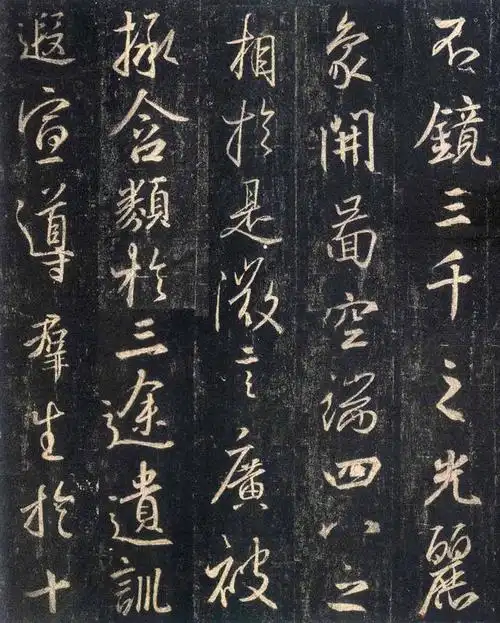 不鏡三千之光麗
象開啚空端四八之
相於是微言廣被
拯含類於三途遺訓
遐宣導群生於十